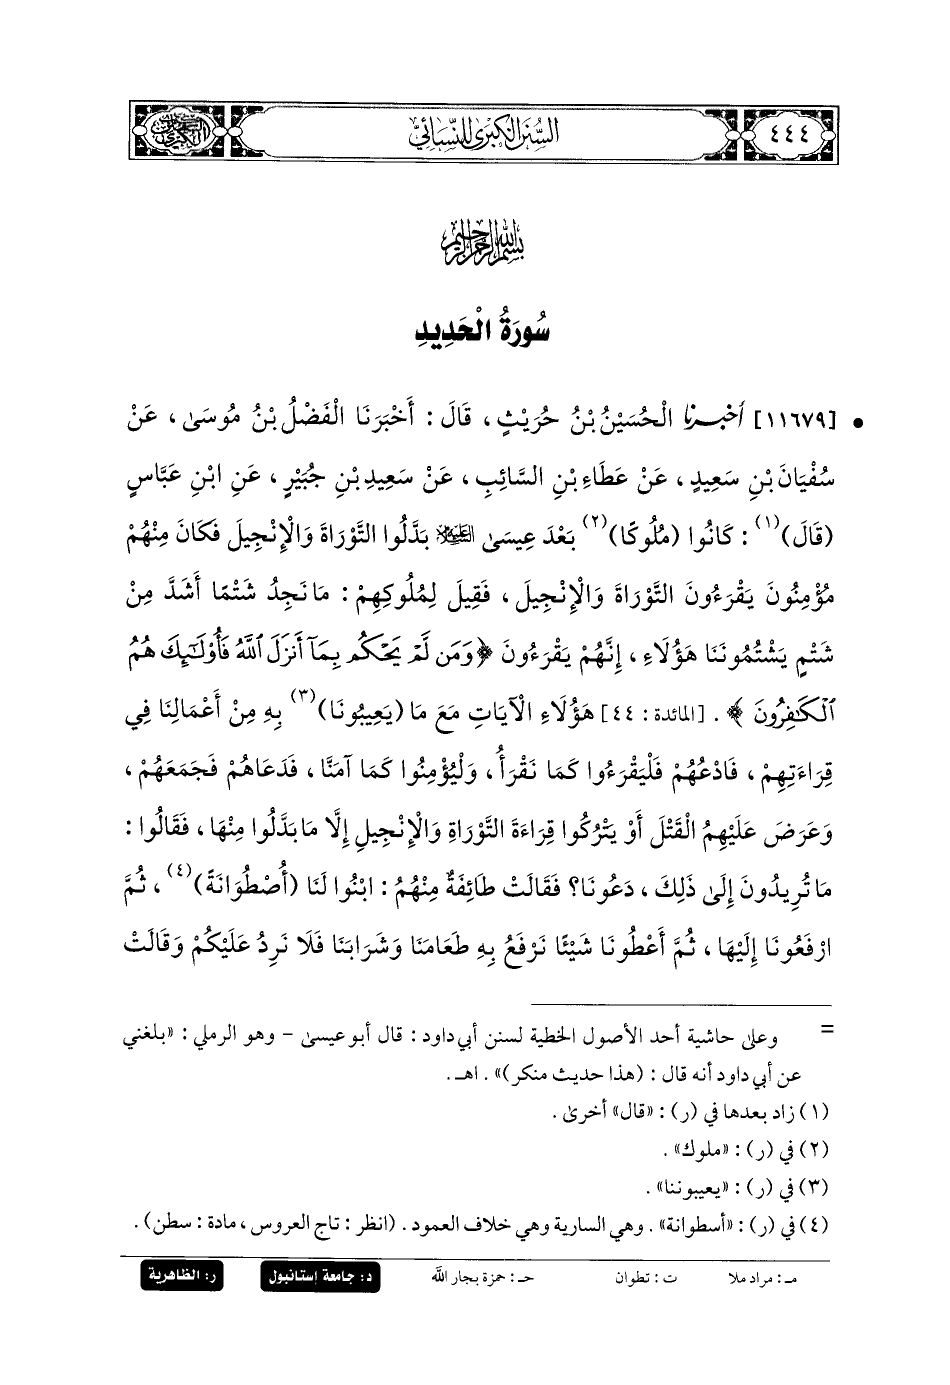 ٤٤٤
السنن الكبرى للنسائي
بسم الله الرحمن الرحيم
سُورَةُ الْحَدِيدِ
• [١١٦٧٩] أخبرنا الْحُسَيْنُ بْنُ حُرَيْثٍ، قَالَ: أَخْبَرَنَا الْفَضْلُ بْنُ مُوسَى، عَنْ
سُفْيَانَ بْنِ سَعِيدٍ، عَنْ عَطَاءِ بْنِ السَّائِبِ، عَنْ سَعِيدِ بْنِ جُبَيْرٍ، عَنِ ابْنِ عَبَّاسٍ
(قَالَ)(١): كَانُوا (مُلُوكًا)(٢) بَعْدَ عِيسَى عليه السلام بَدَّلُوا التَّوْرَاةَ وَالْإِنْجِيلَ فَكَانَ مِنْهُمْ
مُؤْمِنُونَ يَقْرَءُونَ التَّوْرَاةَ وَالْإِنْجِيلَ، فَقِيلَ لِمُلُوكِهِمْ: مَا نَجِدُ شَتْمًا أَشَدَّ مِنْ
شَتْمٍ يَشْتُمُونَنَا هَؤُلَاءِ، إِنَّهُمْ يَقْرَءُونَ ﴿وَمَن لَّمْ يَحْكُم بِمَآ أَنزَلَ ٱللَّهُ فَأُوْلَٰٓئِكَ هُمُ
ٱلْكَٰفِرُونَ﴾. [المائدة: ٤٤] هَؤُلَاءِ الْآيَاتِ مَعَ مَا (يَعِيبُونَا)(٣) بِهِ مِنْ أَعْمَالِنَا فِي
قِرَاءَتِهِمْ، فَادْعُهُمْ فَلْيَقْرَءُوا كَمَا نَقْرَأُ، وَلْيُؤْمِنُوا كَمَا آمَنَّا، فَدَعَاهُمْ فَجَمَعَهُمْ،
وَعَرَضَ عَلَيْهِمُ الْقَتْلَ أَوْ يَتْرُكُوا قِرَاءَةَ التَّوْرَاةِ وَالْإِنْجِيلِ إِلَّا مَا بَدَّلُوا مِنْهَا، فَقَالُوا:
مَا تُرِيدُونَ إِلَى ذَلِكَ، دَعُونَا؟ فَقَالَتْ طَائِفَةٌ مِنْهُمُ: ابْنُوا لَنَا (أُصْطُوَانَةً)(٤)، ثُمَّ
ارْفَعُونَا إِلَيْهَا، ثُمَّ أَعْطُونَا شَيْئًا نَرْفَعُ بِهِ طَعَامَنَا وَشَرَابَنَا فَلَا نَرِدُ عَلَيْكُمْ وَقَالَتْ
= وعلى حاشية أحد الأصول الخطية لسنن أبي داود: قال أبو عيسى - وهو الرملي: «بلغني
عن أبي داود أنه قال: (هذا حديث منكر)». اهـ.
(١) زاد بعدها في (ر): «قال» أخرى.
(٢) في (ر): «ملوك».
(٣) في (ر): «يعيبوننا».
(٤) في (ر): «أسطوانة». وهي السارية وهي خلاف العمود. (انظر: تاج العروس، مادة: سطن).
مـ: مراد ملا ت: تطوان حـ: حمزة بجار الله د: جامعة إستانبول ر: الظاهرية